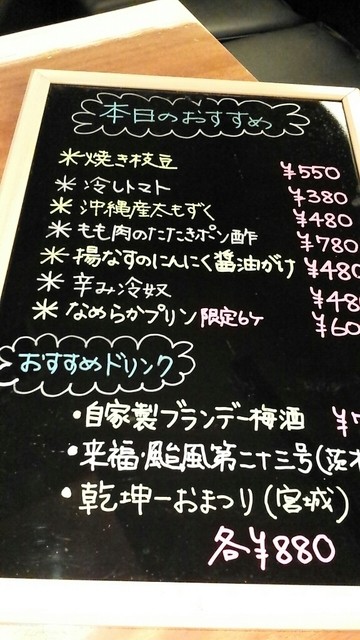 本日のおすすめ
*焼き枝豆 ¥550
*冷しトマト ¥380
*沖縄産太もずく ¥480
*もも肉のたたきポン酢 ¥780
*揚なすのにんにく醤油がけ ¥480
*辛み冷奴 ¥48
*なめらかプリン 限定6ヶ ¥60
おすすめドリンク
・自家製ブランデー梅酒 ¥7
・来福・颱風第二十三号(茨木
・乾坤一おまつり(宮城)
各¥880